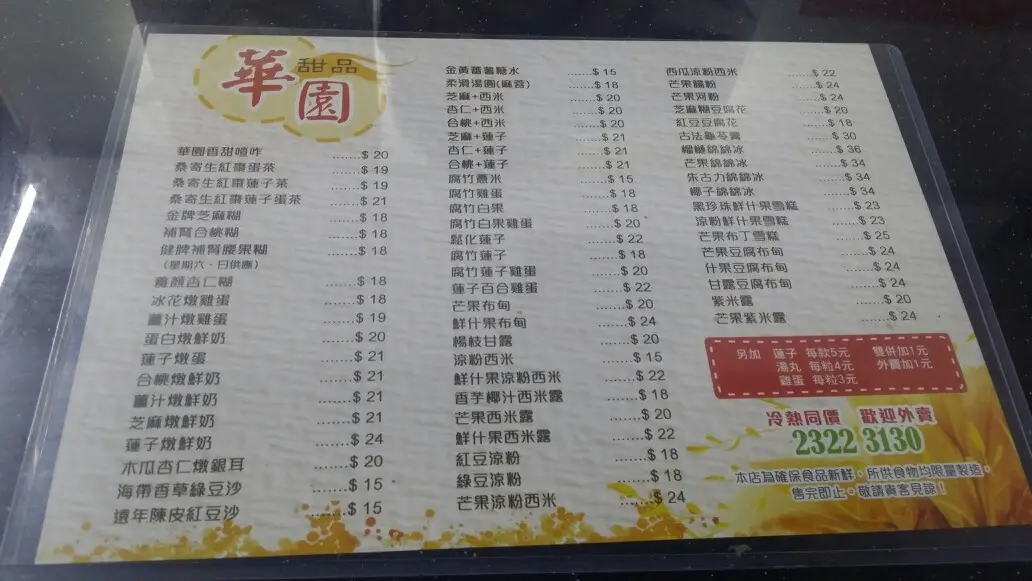 華園
甜品
華園香甜喳咋 ……$ 20
桑寄生紅棗蛋茶 ……$ 19
桑寄生紅棗蓮子茶 ……$ 19
桑寄生紅棗蓮子蛋茶 ……$ 21
金牌芝麻糊 ……$ 18
補腎合桃糊 ……$ 18
健脾補腎腰果糊 ……$ 18
(星期六、日供應)
養顏杏仁糊 ……$ 18
冰花燉雞蛋 ……$ 18
薑汁燉雞蛋 ……$ 19
蛋白燉鮮奶 ……$ 20
蓮子燉蛋 ……$ 21
合桃燉鮮奶 ……$ 21
薑汁燉鮮奶 ……$ 21
芝麻燉鮮奶 ……$ 21
蓮子燉鮮奶 ……$ 24
木瓜杏仁燉銀耳 ……$ 20
海帶香草綠豆沙 ……$ 15
遠年陳皮紅豆沙 ……$ 15
金黃蕃薯糖水 ……$ 15
柔滑湯圓(麻蓉) ……$ 18
芝麻+西米 ……$ 20
杏仁+西米 ……$ 20
合桃+西米 ……$ 20
芝麻+蓮子 ……$ 21
杏仁+蓮子 ……$ 21
合桃+蓮子 ……$ 21
腐竹薏米 ……$ 15
腐竹雞蛋 ……$ 18
腐竹白果 ……$ 18
腐竹白果雞蛋 ……$ 20
鬆化蓮子 ……$ 22
腐竹蓮子 ……$ 18
腐竹蓮子雞蛋 ……$ 20
蓮子百合雞蛋 ……$ 22
芒果布甸 ……$ 20
鮮什果布甸 ……$ 24
楊枝甘露 ……$ 20
涼粉西米 ……$ 15
鮮什果涼粉西米 ……$ 22
香芋椰汁西米露 ……$ 18
芒果西米露 ……$ 20
鮮什果西米露 ……$ 22
紅豆涼粉 ……$ 18
綠豆涼粉 ……$ 18
芒果涼粉西米 ……$ 24
西瓜涼粉西米 ……$ 22
芒果腸粉 ……$ 24
芒果河粉 ……$ 24
芝麻糊豆腐花 ……$ 20
紅豆豆腐花 ……$ 18
古法龜苓膏 ……$ 30
榴槤綿綿冰 ……$ 36
芒果綿綿冰 ……$ 34
朱古力綿綿冰 ……$ 34
椰子綿綿冰 ……$ 34
黑珍珠鮮什果雪糕 ……$ 23
涼粉鮮什果雪糕 ……$ 23
芒果布丁雪糕 ……$ 25
芒果豆腐布甸 ……$ 24
什果豆腐布甸 ……$ 24
甘露豆腐布甸 ……$ 24
紫米露 ……$ 20
芒果紫米露 ……$ 24
另加 蓮子 每款5元 雙併加1元
湯丸 每粒4元 外賣加1元
雞蛋 每粒3元
冷熱同價 歡迎外賣
2322 3130
本店為確保食品新鮮，所供食物均限量製造，
售完即止，敬請貴客見諒！